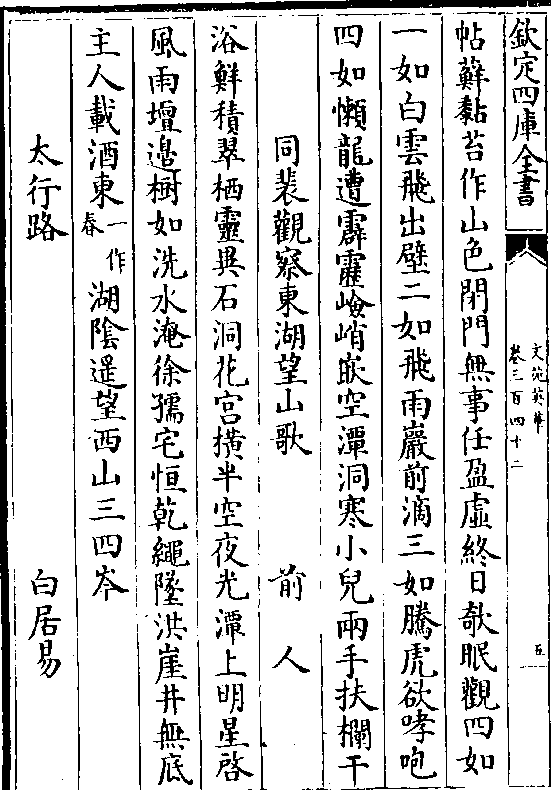 欽定四庫全書
文苑英華
卷三百四十二
五
帖蘚黏苔作山色閉門無事任盈虛終日欹眠觀四如
一如白雲飛出壁二如飛雨巖前滴三如騰虎欲哮咆
四如懶龍遭霹靂嶮峭嵌空潭洞寒小兒兩手扶欄干
同裴觀察東湖望山歌 前人
浴鮮積翠栖靈異石洞花宮橫半空夜光潭上明星啓
風雨壇邊樹如洗水淹徐孺宅恒乾繩墜洪崖井無底
主人載酒東一作春湖陰遥望西山三四岑
太行路 白居易